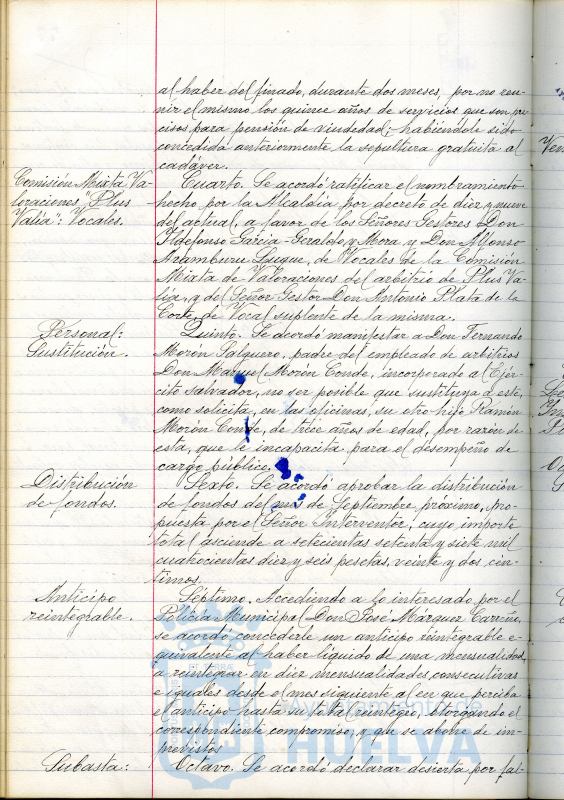 al haber del finado, durante dos meses, por no reu-
nir el mismo los quince años de servicios que son pre-
cisos para pensión de viudedad; habiéndole sido
concedida anteriormente la sepultura gratuita al
cadáver.
Comisión Mixta Va-
loraciones "Plus
Valía": Vocales.
Cuarto. Se acordó ratificar el nombramiento
hecho por la Alcaldía por decreto de diez y nueve
del actual, a favor de los Señores Gestores Don
Ildefonso García-Geralde y Mora y Don Alfonso
Aramburu Luque, de Vocales de la Comisión
Mixta de Valoraciones del arbitrio de Plus Va-
lía, y del Señor Gestor Don Antonio Plata de la
Corte, de Vocal suplente de la misma.
Personal:
Sustitución.
Quinto. Se acordó manifestar a Don Fernando
Morón Salguero, padre del empleado de arbitrios
Don Manuel Morón Conde, incorporado al Ejér-
cito salvador, no ser posible que sustituya a éste,
como solicita, en las oficinas, su otro hijo Ramón
Morón Conde, de trece años de edad, por razón de
ésta, que le incapacita para el desempeño de
cargo público.
Distribución
de fondos.
Sexto. Se acordó aprobar la distribución
de fondos del mes de Septiembre próximo, pro-
puesta por el Señor Interventor, cuyo importe
total asciende a setecientas setenta y siete mil
cuatrocientas diez y seis pesetas, veinte y dos cén-
timos.
Anticipo
reintegrable.
Séptimo. Accediendo a lo interesado por el
Policía Municipal Don José Márquez Carreño,
se acordó concederle un anticipo reintegrable e-
quivalente al haber líquido de una mensualidad,
a reintegrar en diez mensualidades consecutivas
e iguales desde el mes siguiente al en que perciba
el anticipo hasta su total reintegro, otorgando el
correspondiente compromiso, y que se abone de im-
previstos
Subasta:
Octavo. Se acordó declarar desierta por fal-
Ayuntamiento de
HUELVA